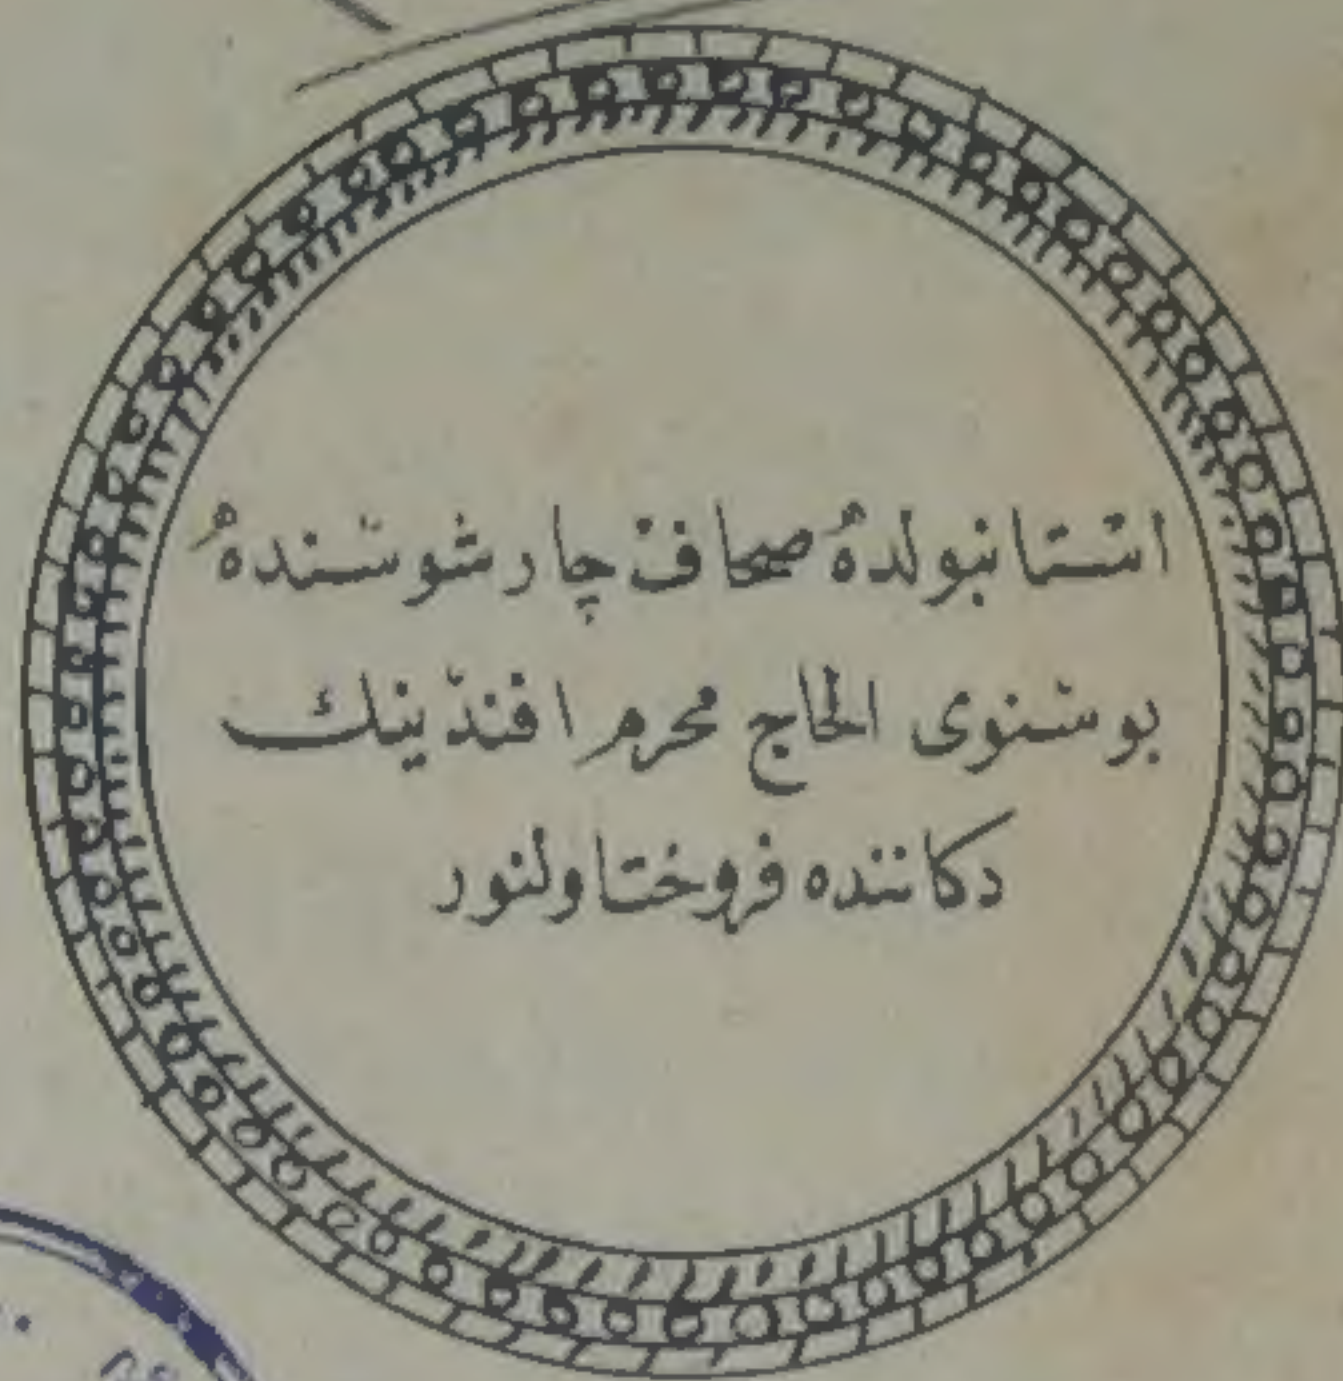 استانبولده صحاف چارشوسنده
بوسنوى الحاج محرم افندينك
دكاننده فروخت اولنور